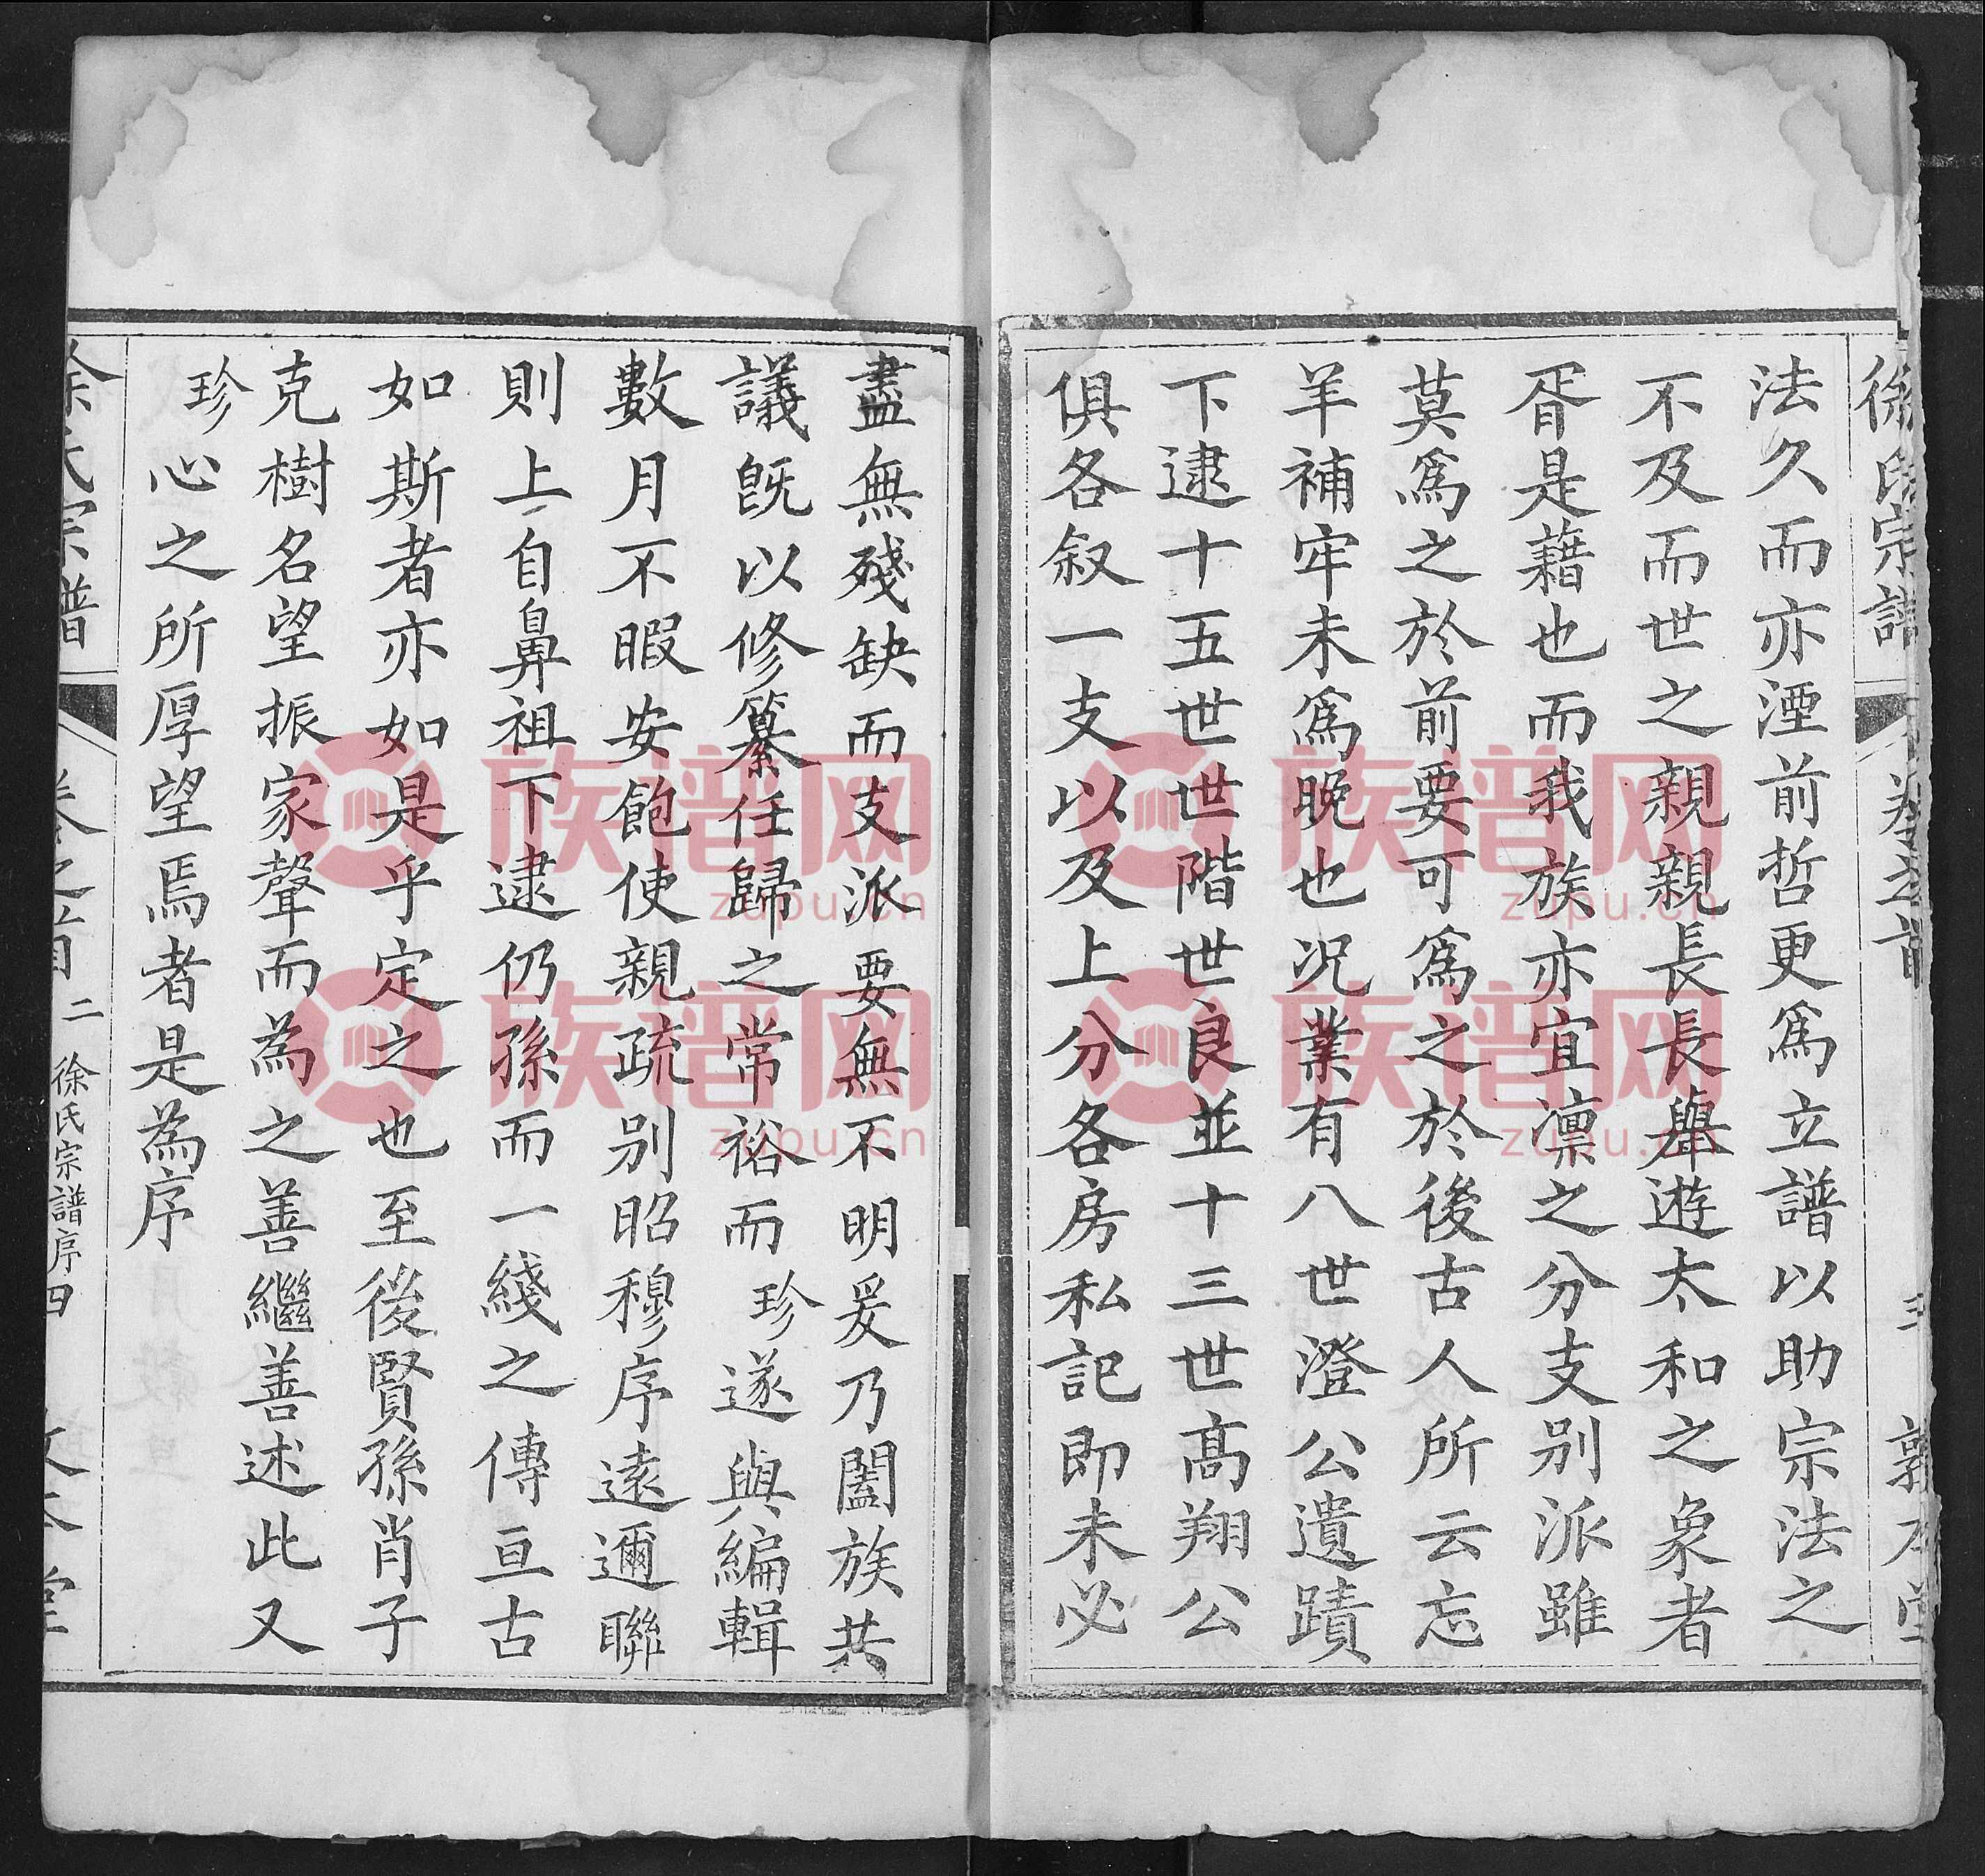 徐氏宗譜
法久而亦湮前哲更爲立譜以助宗法之
不及而世之親親長長舉遊太和之象者
胥是藉也而我族亦宜凛之分支別派雖
莫爲之於前要可爲之於後古人所云忘
羊補牢未爲晚也況業有八世澄公遺蹟
下逮十五世世階世良並十三世高翔公
俱各叙一支以及上分各房私記即未必
盡無殘缺而支派要無不明爰乃闔族共
議旣以修纂任歸之常裕而珍遂與編輯
數月不暇安飽使親疏別昭穆序遠邇聯
則上自鼻祖下逮仍孫而一綫之傳亘古
如斯者亦如是乎定之也至後賢孫肖子
克樹名望振家聲而為之善繼善述此又
珍心之所厚望焉者是為序
徐氏宗譜
卷之首
二
徐氏宗譜序四
族谱网
zupu.cn
族谱网
zupu.cn
族谱网
zupu.cn
族谱网
zupu.cn